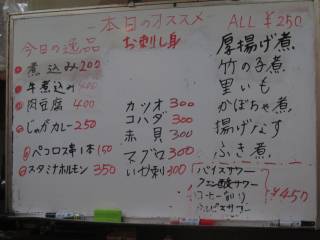 本日のオススメ
今日の逸品
煮込み 200
牛煮込み 400
肉豆腐 400
じゃがカレー 250
ペコロス串1本 150
スタミナホルモン 350
お刺し身
カツオ 300
コハダ 300
赤貝 300
マグロ 300
いか刺 300
ALL ¥250
厚揚げ煮
竹の子煮
里いも
かぼちゃ煮
揚げなす
ふき煮
バイスサワー
クエン酸サワー
¥450